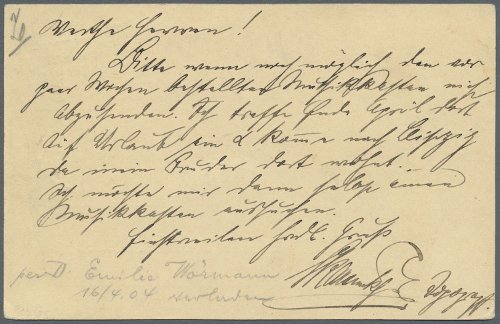 Werthe Herren!
Bitte wenn noch möglich den vor
paar Wochen bestellten Musikkasten nicht
abzusenden. Ich treffe Ende April dort
auf Urlaub ein & komme nach Leipzig
da mein Bruder dort wohnt.
Ich möchte mir dann selbst einen
Musikkasten aussuchen.
Einstweilen frdl. Gruß
Topograph
per D Emilie Wörmann
16/4.04